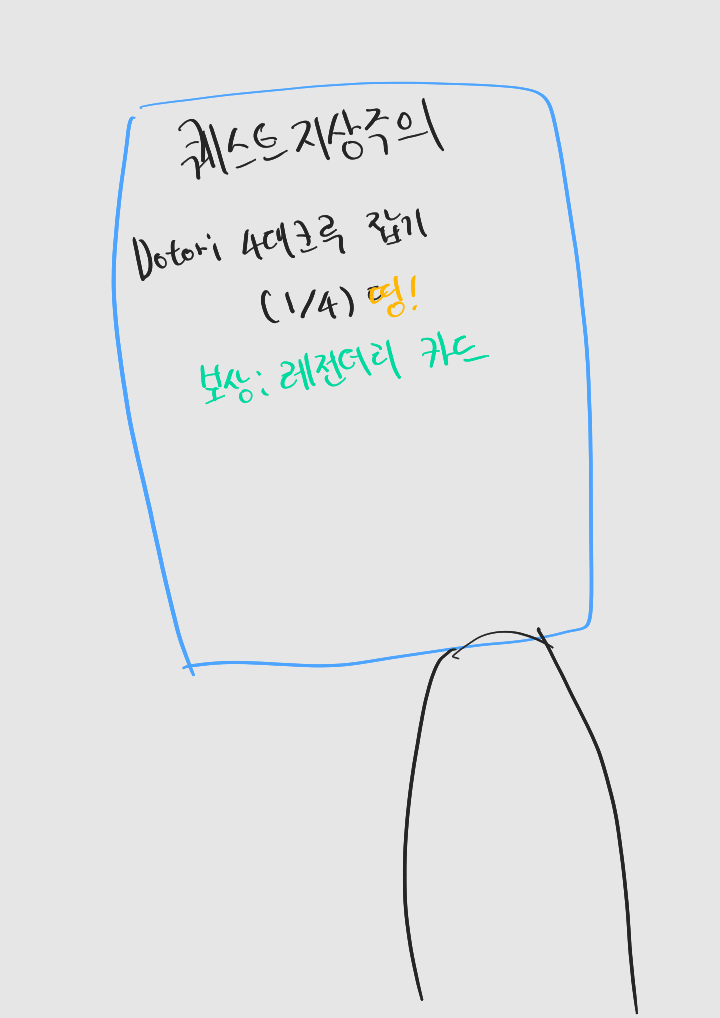 퀘스트지상주의
Dotori 4대크루 잡기
(1/4) 띵!
보상: 레전더리 카드